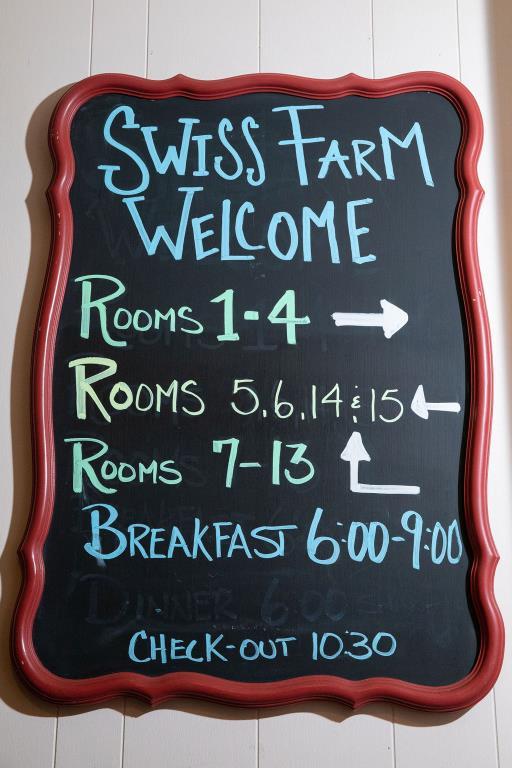 SWISS FARM
WELCOME
ROOMS 1-4 →
ROOMS 5,6,14 & 15 ←
ROOMS 7-13
BREAKFAST 6:00-9:00
DINNER 6:00
CHECK-OUT 10:30